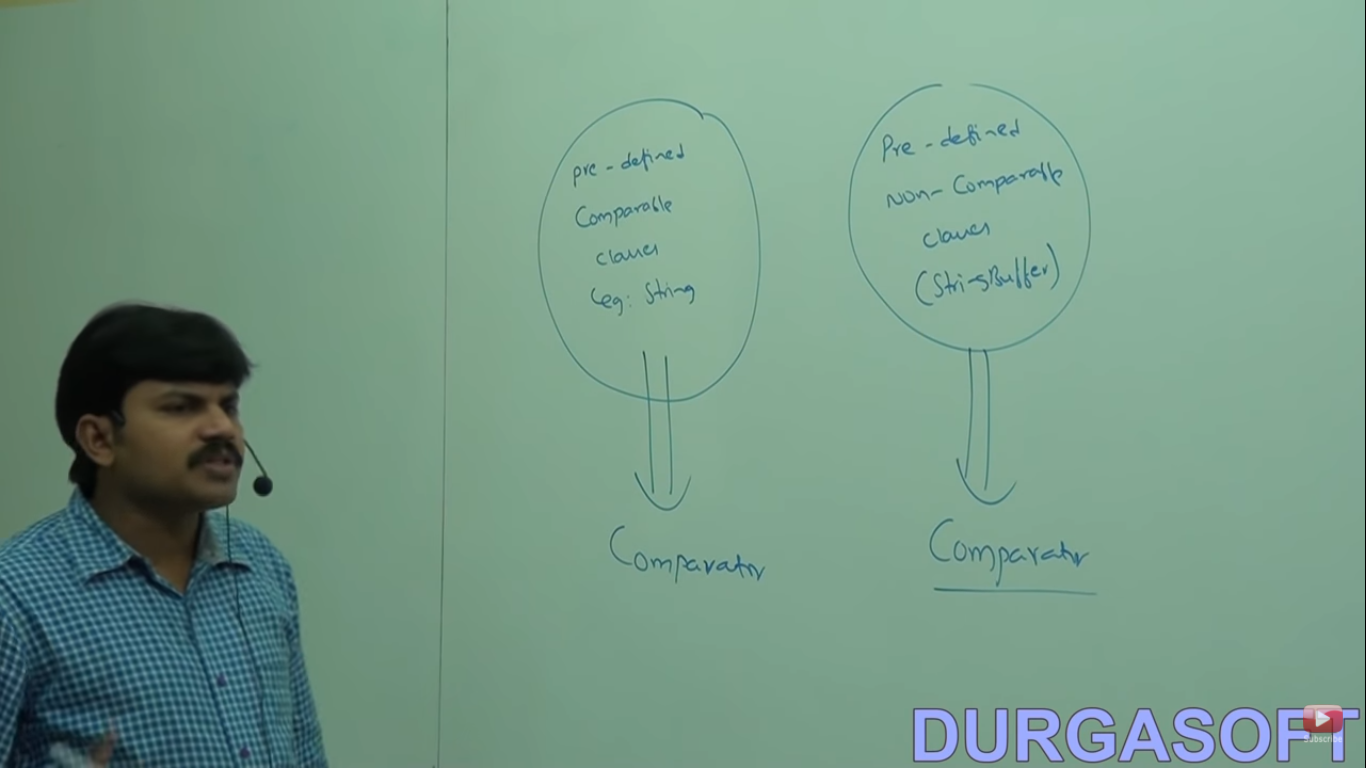 pre-defined
Comparable
classes
eg: String
Comparator
Pre-defined
non-Comparable
classes
(StringBuffer)
Comparator
DURGASOFT
Subscribe